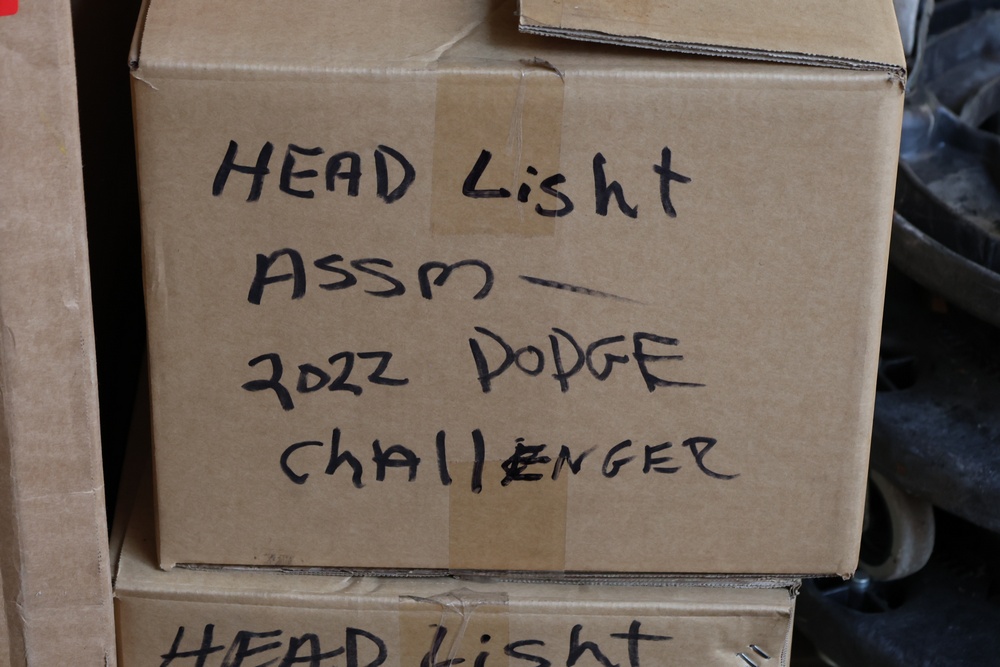 HEAD Light
ASSM —
2022 DODGE
ChAllENGER
HEAD Light